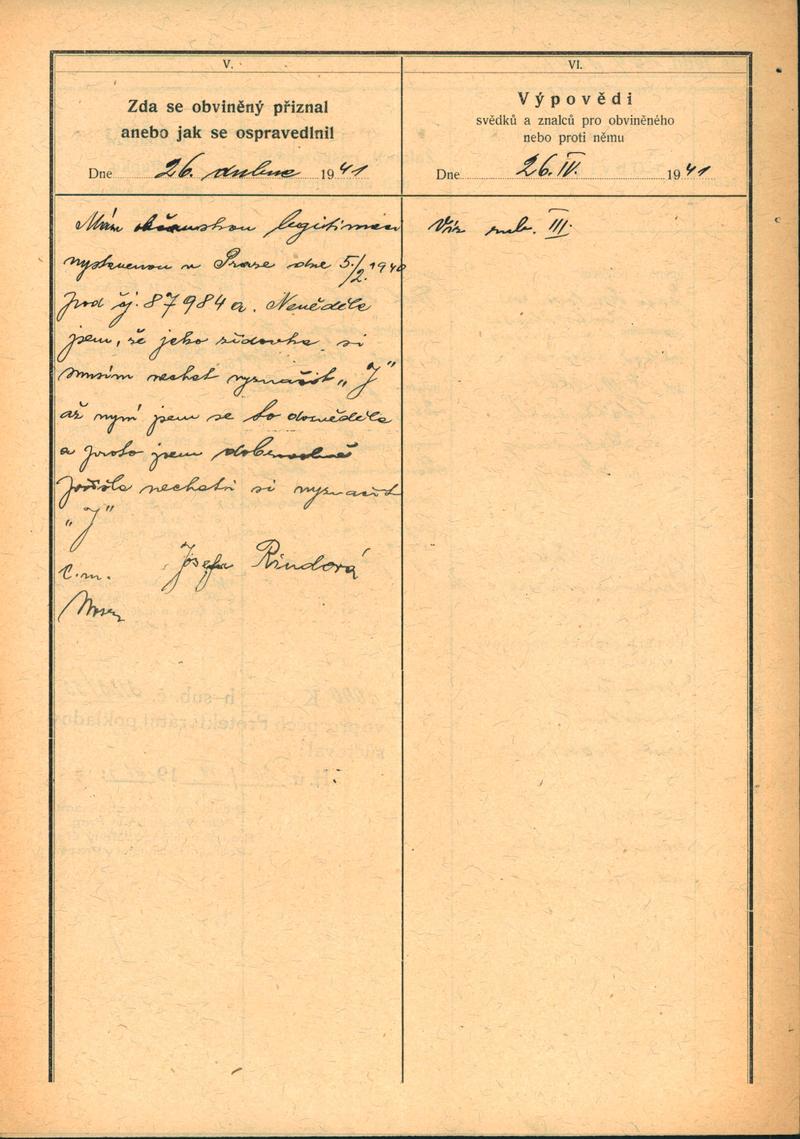 V.
Zda se obviněný přiznal
anebo jak se ospravedlnil
Dne 26. dubna 1941
Mám občanskou legitimaci
vystavenou v Praze dne 5./2. 1940
pod čj. 87984 a. Nevěděla
jsem, že jako židovka si
musím nechat vyznačit „J"
až nyní jsem se to dověděla
a proto jsem dobrovolně
přišla nechati si vyznačit
„J"
Josefa Rindová
VI.
Výpovědi
svědků a znalců pro obviněného
nebo proti němu
Dne 26. IV. 1941
Viz rub. III.